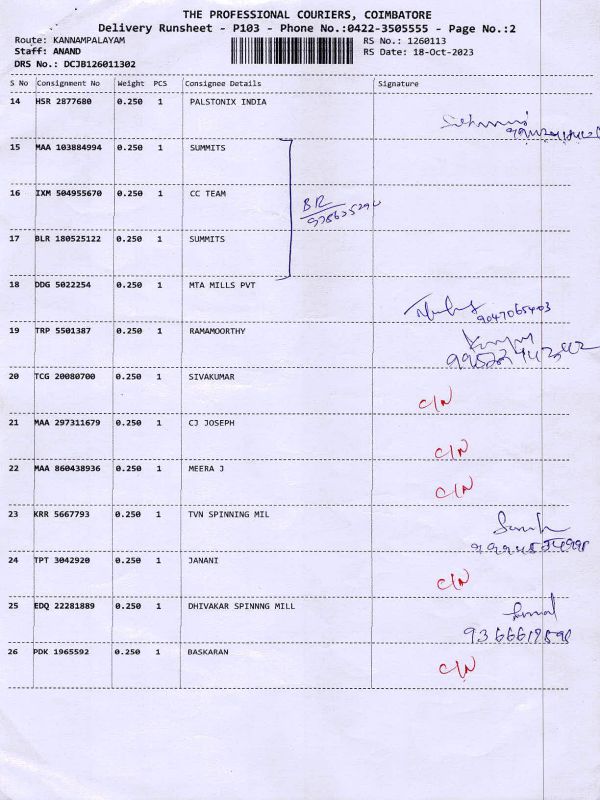 THE PROFESSIONAL COURIERS, COIMBATORE
Delivery Runsheet - P103 - Phone No.:0422-3505555 - Page No.:2
Route: KANNAMPALAYAM RS No.: 1260113
Staff: ANAND RS Date: 18-Oct-2023
DRS No.: DCJB126011302
S No Consignment No Weight PCS Consignee Details Signature
14 HSR 2877680 0.250 1 PALSTONIX INDIA
15 MAA 103884994 0.250 1 SUMMITS
16 IXM 504955670 0.250 1 CC TEAM
BR
17 BLR 180525122 0.250 1 SUMMITS
18 DDG 5022254 0.250 1 MTA MILLS PVT
9047065403
19 TRP 5501387 0.250 1 RAMAMOORTHY
20 TCG 20080700 0.250 1 SIVAKUMAR
C/N
21 MAA 297311679 0.250 1 CJ JOSEPH
C/N
22 MAA 860438936 0.250 1 MEERA J
C/N
23 KRR 5667793 0.250 1 TVN SPINNING MIL
24 TPT 3042920 0.250 1 JANANI
C/N
25 EDQ 22281889 0.250 1 DHIVAKAR SPINNNG MILL
26 PDK 1965592 0.250 1 BASKARAN
C/N